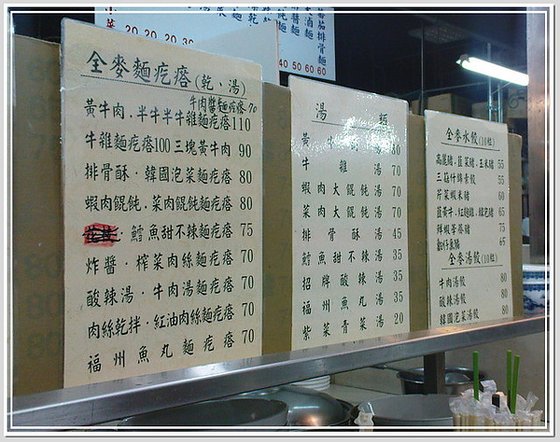 小菜
20. 20. 20. 30
40 50 60 60
番茄排骨麵
全麥麵疙瘩(乾、湯)
牛肉醬麵疙瘩 70
黃牛肉．半牛半牛雜麵疙瘩110
牛雜麵疙瘩100 三塊黃牛肉 90
排骨酥．韓國泡菜麵疙瘩 80
蝦肉餛飩．菜肉餛飩麵疙瘩 80
鱈魚甜不辣麵疙瘩 75
炸醬．榨菜肉絲麵疙瘩 70
酸辣湯．牛肉湯麵疙瘩 70
肉絲乾拌．紅油肉絲麵疙瘩 70
福州魚丸麵疙瘩 70
湯 類
黃牛肉湯
牛雜湯 70
蝦肉大餛飩湯 70
菜肉大餛飩湯 70
排骨酥湯 45
鱈魚甜不辣湯 35
招牌酸辣湯 35
福州魚丸湯 35
紫菜青菜湯 20
全麥水餃(10粒)
高麗豬．韭菜豬．玉米豬 55
芹菜蝦米豬 60
鮮蝦 75
65
全麥湯餃(10粒)
牛肉湯餃 80
酸辣湯餃 80
韓國泡菜湯餃 80